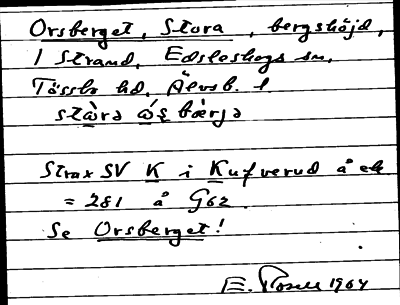 Orsberget, Stora, bergshöjd,
I Strand, Edsleskogs sn,
Tössbo hd, Älvsb. l.
stώra ώʂbærja
Strax SV K i Kufverud å ek
= 281 å G62.
Se Orsberget!
E. 1964